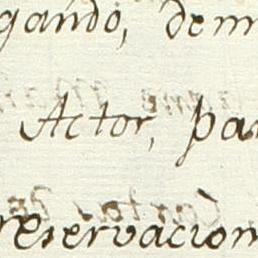 gando, dem
Actor, pa
reservacion